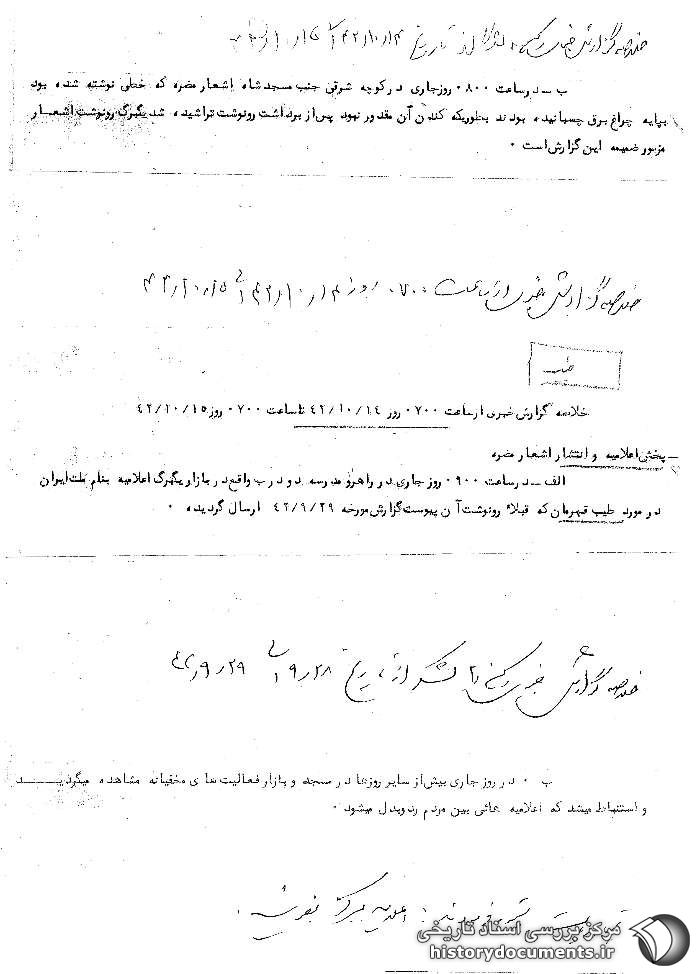 خلاصه گزارش خبری رکن ۲ لشگر از تاریخ ۴۲/۱۰/۱۴ تا ۴۲/۱۰/۱۵
ب ــ در ساعت ۰۸۰۰ روز جاری در کوچه شرقی جنب مسجد شاه اشعار مضره که خطی نوشته شده بود
بپایه چراغ برق چسبانیده بودند بطوریکه کندن آن مقدور نبود پس از برداشت رونوشت تراشیده شد یکبرگ رونوشت اشعـــار
مزبور ضمیمه این گزارش است ۰
خلاصه گزارش خبری از ساعت ۰۷۰۰ روز ۴۲/۱۰/۱۴ تا ۴۲/۱۰/۱۵
طیب
خلاصه گزارش خبری از ساعت ۰۷۰۰ روز ۴۲/۱۰/۱۴ تا ساعت ۰۷۰۰ روز ۴۲/۱۰/۱۵
ــ پخش اعلامیه و انتشار اشعار مضره
الف ــ در ساعت ۰۹۰۰ روز جاری در راهرو مدرسه دو درب واقع در بازار یکبرگ اعلامیه بنام ملت ایران
در مورد طیب قهرمان که قبلا" رونوشت آن پیوست گزارش مورخه ۴۲/۹/۲۹ ارسال گردیده ۰
خلاصه گزارش خبری رکن ۲ لشگر از تاریخ ۹/۲۸ تا ۴۲/۹/۲۹
ب ۰ در روز جاری بیش از سایر روزها در مسجد و بازار فعالیت های مخفیانه مشاهده میگردیـــــد
و استنباط میشد که اعلامیه هائی بین مردم رد و بدل میشود ۰
مرکز بررسی اسناد تاریخی
historydocuments.ir